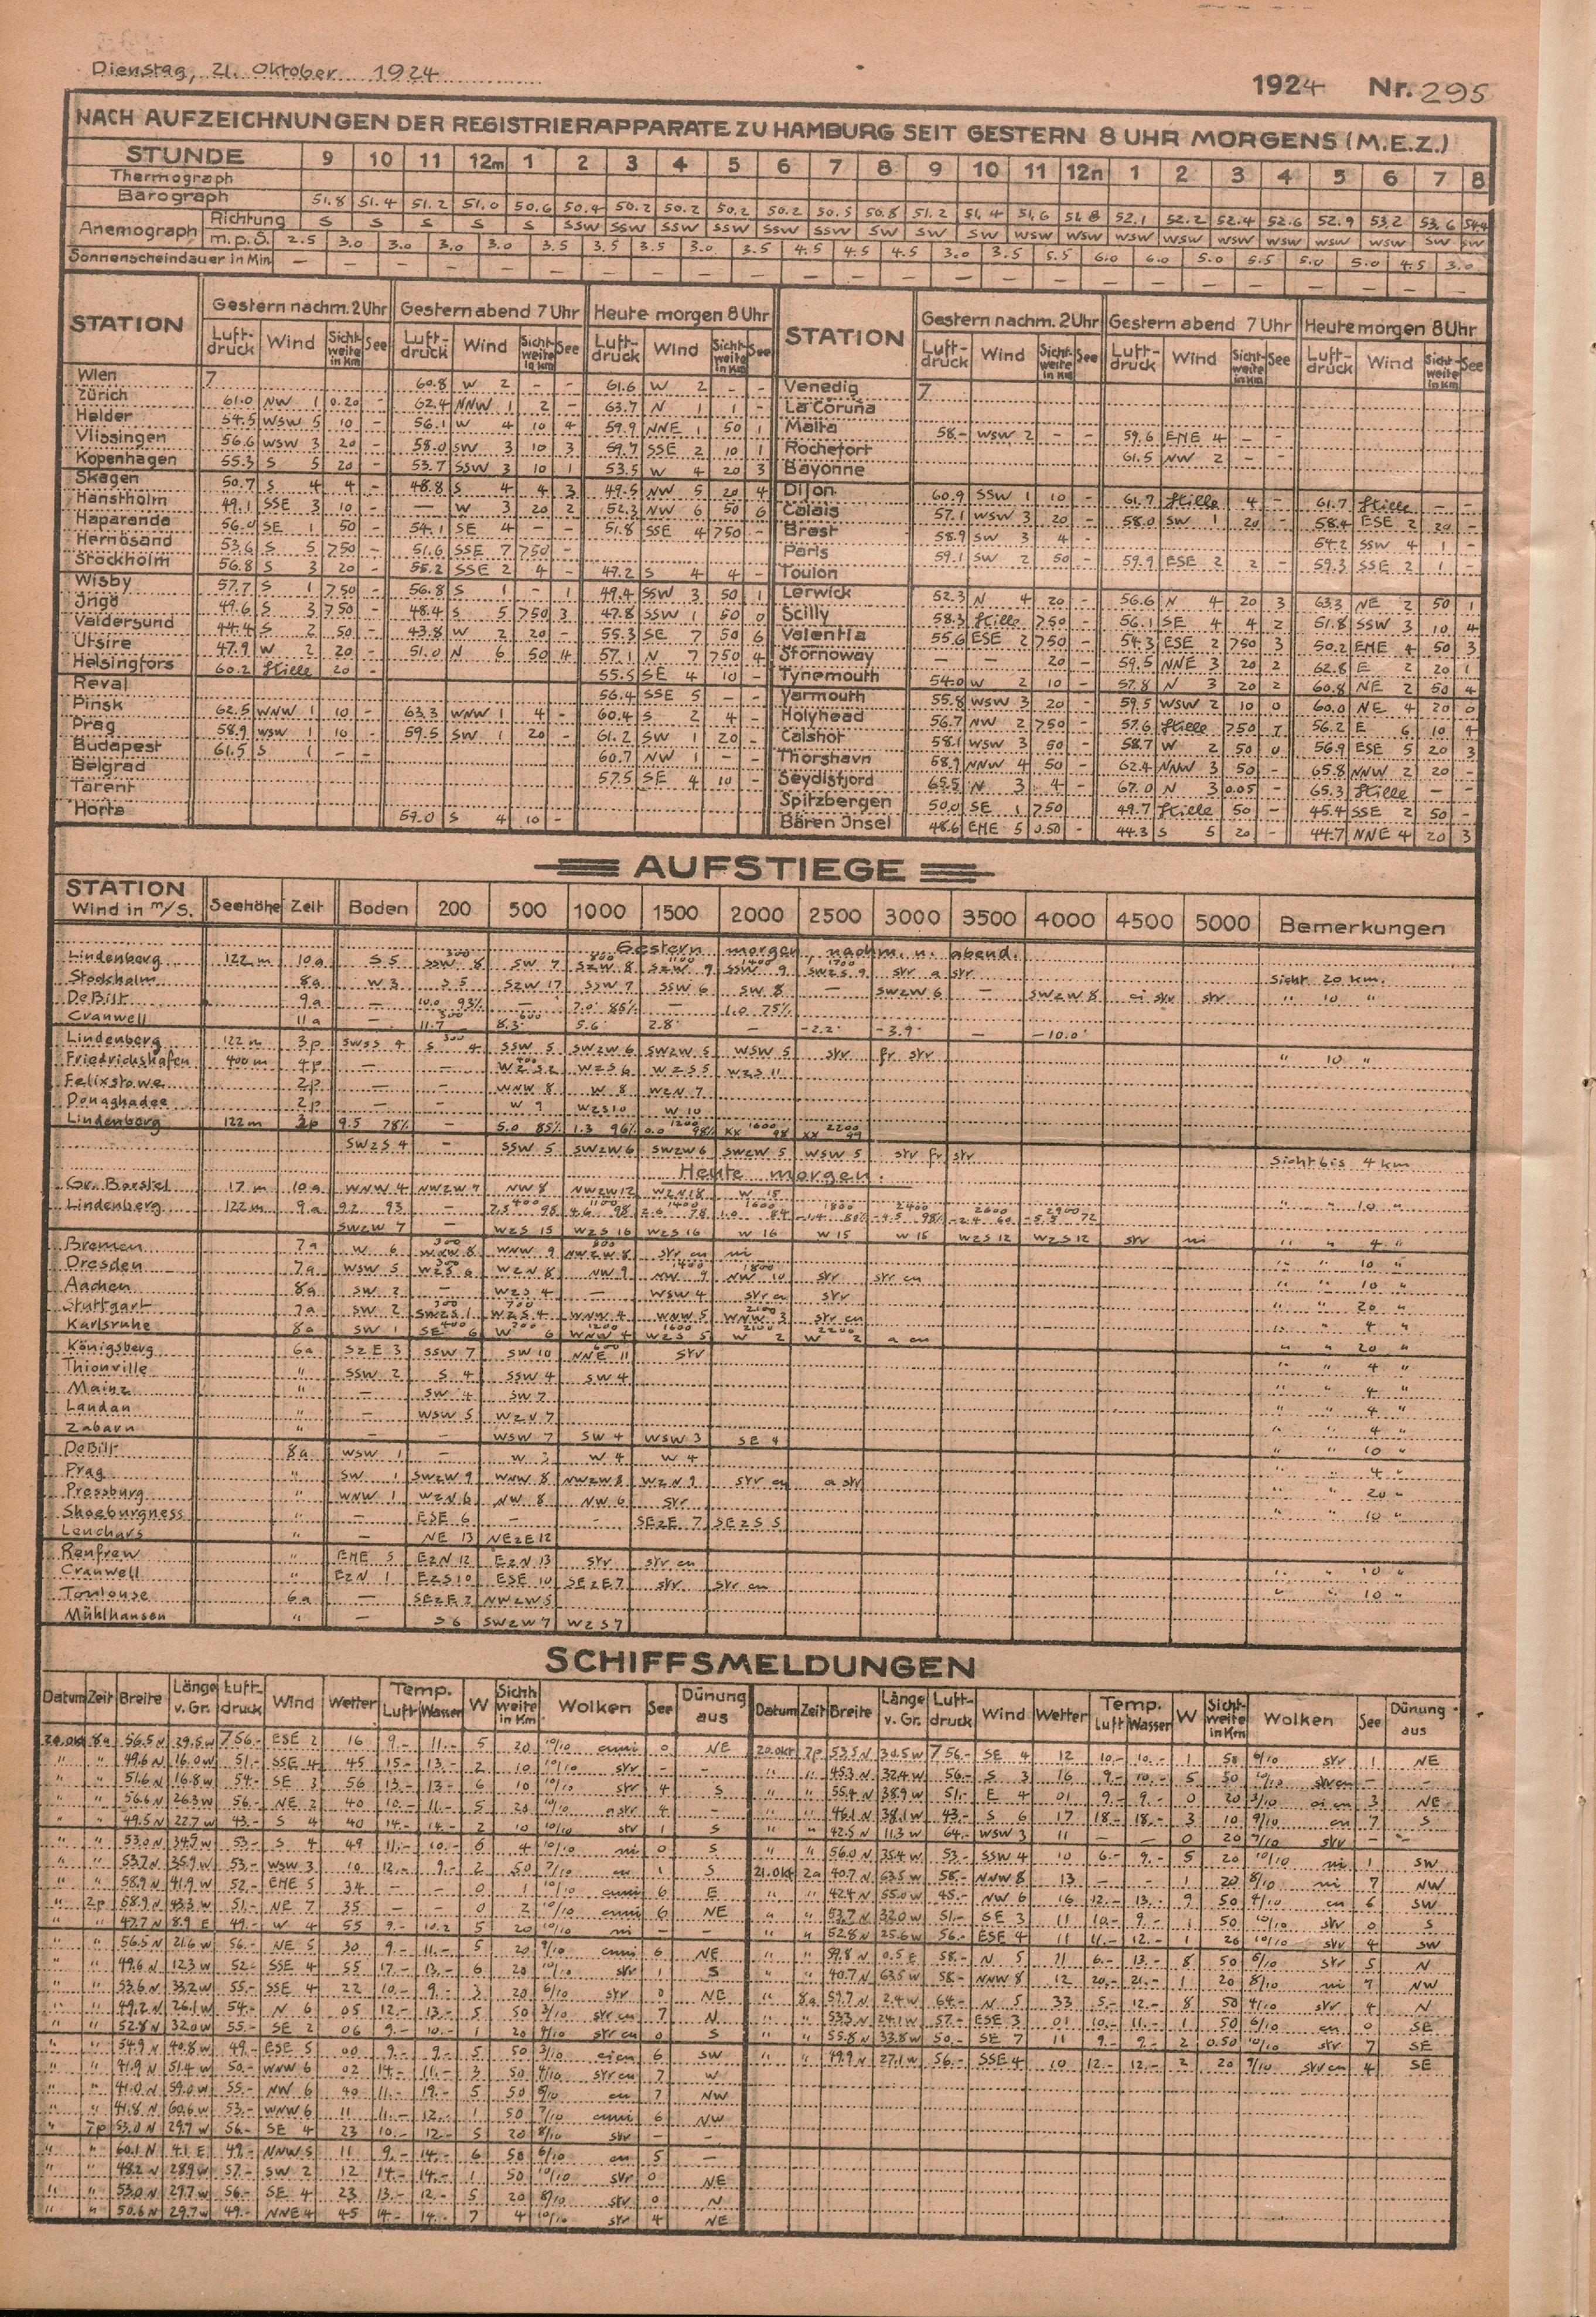 Dienstag, 21. Oktober 1924
1924 Nr. 295
NACH AUFZEICHNUNGEN DER REGISTRIERAPPARATE ZU HAMBURG SEIT GESTERN 8 UHR MORGENS (M.E.Z.)
STUNDE 9 10 11 12m 1 2 3 4 5 6 7 8 9 10 11 12n 1 2 3 4 5 6 7 8
Thermograph
Barograph 51.8 51.4 51.2 51.0 50.6 50.4 50.2 50.2 50.2 50.2 50.5 50.8 51.2 51.4 51.6 51.8 52.1 52.2 52.4 52.6 52.9 53.2 53.6 54.4
Anemograph Richtung S S S S S SSW SSW SSW SSW SSW SSW SW SW SW WSW WSW WSW WSW WSW WSW WSW WSW SW SW
m.p.S. 2.5 3.0 3.0 3.0 3.0 3.5 3.5 3.5 3.0 3.5 4.5 4.5 4.5 3.0 3.5 5.5 6.0 6.0 5.0 5.5 5.0 5.0 4.5 3.0
Sonnenscheindauer in Min. — — — — — — — — — — — — — — — — — — — — — — — —
STATION Gestern nachm. 2 Uhr Gestern abend 7 Uhr Heute morgen 8 Uhr STATION Gestern nachm. 2 Uhr Gestern abend 7 Uhr Heute morgen 8 Uhr
Luftdruck Wind Sichtweite in Km See Luftdruck Wind Sichtweite in Km See Luftdruck Wind Sichtweite in Km See Luftdruck Wind Sichtweite in Km See Luftdruck Wind Sichtweite in Km See Luftdruck Wind Sichtweite in Km See
Wien 7 60.8 W 2 - - 61.6 W 2 - - Venedig 7
Zürich 61.0 NW 1 0.20 - 62.4 NNW 1 2 - 63.7 N 1 1 - La Coruña
Helder 54.5 WSW 5 10 - 56.1 W 4 10 4 59.9 NNE 1 50 1 Malta 58.- WSW 2 - - 59.6 ENE 4 - -
Vlissingen 56.6 WSW 3 20 - 58.0 SW 3 10 3 59.7 SSE 2 10 1 Rochefort 61.5 NW 2 - -
Kopenhagen 55.3 S 5 20 - 53.7 SSW 3 10 1 53.5 W 4 20 3 Bayonne
Skagen 50.7 S 4 4 - 48.8 S 4 4 3 49.5 NW 5 20 4 Dijon 60.9 SSW 1 10 - 61.7 Stille 4 - 61.7 Stille - -
Hanstholm 49.1 SSE 3 10 - — W 3 20 2 52.3 NW 6 50 6 Calais 57.1 WSW 3 20 - 58.0 SW 1 20 - 58.4 ESE 2 20 -
Haparanda 56.0 SE 1 50 - 54.1 SE 4 - - 51.8 SSE 4 750 - Brest 58.9 SW 3 4 - 54.2 SSW 4 1 -
Hernösand 53.6 S 5 750 - 51.6 SSE 7 750 - Paris 59.1 SW 2 50 - 59.9 ESE 2 2 - 59.3 SSE 2 1 -
Stockholm 56.8 S 3 20 - 55.2 SSE 2 4 - 49.2 S 4 4 - Toulon
Wisby 57.7 S 1 750 - 56.8 S 1 - 1 49.4 SSW 3 50 1 Lerwick 52.3 N 4 20 - 56.6 N 4 20 3 63.3 NE 2 50 1
Ingö 49.6 S 3 750 - 48.4 S 5 750 3 47.8 SSW 1 50 0 Scilly 58.3 Stille 750 - 56.1 SE 4 4 2 51.8 SSW 3 10 4
Valdersund 44.4 S 2 50 - 43.8 W 2 20 - 55.3 SE 7 50 6 Valentia 55.6 ESE 2 750 - 54.3 ESE 2 750 3 50.2 ENE 4 50 3
Utsire 47.9 W 2 20 - 51.0 N 6 50 4 57.1 N 7 750 4 Stornoway — — 20 - 59.5 NNE 3 20 2 62.8 E 2 20 1
Helsingfors 60.2 Stille 20 - 55.5 SE 4 10 - Tynemouth 54.0 W 2 10 - 57.8 N 3 20 2 60.8 NE 2 50 4
Reval 56.4 SSE 5 - - Yarmouth 55.8 WSW 3 20 - 59.5 WSW 2 10 0 60.0 NE 4 20 0
Pinsk 62.5 WNW 1 10 - 63.3 WNW 1 4 - 60.4 S 2 4 - Holyhead 56.7 NW 2 750 - 57.6 Stille 750 7 56.2 E 6 10 4
Prag 58.9 WSW 1 10 - 59.5 SW 1 20 - 61.2 SW 1 20 - Calshot 58.1 WSW 3 50 - 58.7 W 2 50 0 56.9 ESE 5 20 3
Budapest 61.5 S 1 - - 60.7 NW 1 - - Thorshavn 58.9 NNW 4 50 - 62.4 NNW 3 50 - 65.8 NNW 2 20 -
Belgrad 57.5 SE 4 10 - Seydisfjord 65.5 N 3 4 - 67.0 N 3 0.05 - 65.3 Stille - -
Tarent Spitzbergen 50.0 SE 1 750 49.7 Stille 50 - 45.4 SSE 2 50 -
Horta 59.0 S 4 10 - Bären Insel 48.6 ENE 5 0.50 - 44.3 S 5 20 - 44.7 NNE 4 20 3
AUFSTIEGE
STATION Wind in m/S. Seehöhe Zeit Boden 200 500 1000 1500 2000 2500 3000 3500 4000 4500 5000 Bemerkungen
Gestern morgen, nachm. u. abend.
Lindenberg 122 m 10a S 5 300 SSW 8 SW 7 800 SzW 8 1100 SzW 9 1400 SSW 9 1700 SWzS 9 str a str Sicht 20 km.
Stockholm 8a W 3 S 5 SzW 17 SSW 7 SSW 6 SW 8 — SWzW 6 — SWzW 8 ci str str " 10 "
De Bilt 9a — 10.0 93% — 7.0 85% — 1.0 75%
Cranwell 11a — 300 11.7 600 8.3 5.6 2.8 — -2.2 -3.9 — -10.0
Lindenberg 122 m 3p SWzS 4 300 S 4 SSW 5 SWzW 6 SWzW 5 WSW 5 str fr str " 10 "
Friedrichshafen 400 m 4p — — 400 WzS 2 WzS 6 WzS 5 WzS 11
Felixstowe 2p — — WNW 8 W 8 WzN 7
Donaghadee 2p — — W 9 WzS 10 W 10
Lindenberg 122 m 3p 9.5 78% — 5.0 85% 1.3 96% 1200 0.0 98% 1600 xx 98 2200 xx 99
SWzS 4 — SSW 5 SWzW 6 SWzW 6 SWzW 5 WSW 5 str fr str Sicht bis 4 km
Heute morgen.
Gr. Borstel 17 m 10a WNW 4 NWzW 7 NW 8 NWzW 12 WzN 18 W 15 " " 10 "
Lindenberg 122 m 9a 9.2 93 —
SWzW 7 — WzS 15 WzS 16 WzS 16 W 16 W 15 W 15 WzS 12 WzS 12 str ni " " 4 "
Bremen 7a W 6 300 WNW 8 WNW 9 800 NWzW 8 str cu ni " " 10 "
Dresden 7a WSW 5 300 WzS 6 WzN 8 NW 9 1400 NW 9 1800 NW 10 str str cu " " 10 "
Aachen 8a SW 2 — WzS 4 — WSW 4 str cu str " " 20 "
Stuttgart 7a SW 2 300 SWzS 1 700 WzS 4 WNW 4 WNW 5 2100 WNW 3 str cu " " 4 "
Karlsruhe 8a SW 1 400 SE 6 700 W 6 1200 WNW 4 1600 WzS 5 2100 W 2 2200 W 2 a cu " " 20 "
Königsberg 6a SzE 3 SSW 7 SW 10 600 NNE 11 str " " 4 "
Thionville " SSW 2 S 4 SSW 4 SW 4 " " 4 "
Mainz " — SW 4 SW 7 " " 4 "
Landau " — WSW 5 WzN 7 " " 4 "
Zabern " — — WSW 7 SW 4 WSW 3 SE 4 " " 10 "
De Bilt 8a WSW 1 — W 3 W 4 W 4 " " 4 "
Prag " SW 1 SWzW 9 WNW 8 NWzW 8 WzN 9 str cu a str " " 20 "
Pressburg " WNW 1 WzN 6 NW 8 NW 6 str " " 10 "
Shoeburgness " — ESE 6 — — SEzE 7 SEzS 5
Leuchars " — NE 13 NEzE 12
Renfrew " ENE 5 EzN 12 EzN 13 str str cu " " 10 "
Cranwell " EzN 1 EzS 10 ESE 10 SEzE 7 str str cu " " 10 "
Toulouse 6a — SEzE 2 NWzW 5
Mühlhausen " — S 6 SWzW 7 WzS 7
SCHIFFSMELDUNGEN
Datum Zeit Breite Länge v. Gr. Luftdruck Wind Wetter Temp. Luft Wasser W Sichtweite in Km Wolken See Dünung aus Datum Zeit Breite Länge v. Gr. Luftdruck Wind Wetter Temp. Luft Wasser W Sichtweite in Km Wolken See Dünung aus
20. Okt 8a 56.5 N 29.5 W 756.- ESE 2 16 9.- 11.- 5 20 10/10 cuni 0 NE 20. Okt 7p 53.5 N 30.5 W 756.- SE 4 12 10.- 10.- 1 50 6/10 str 1 NE
" " 49.6 N 16.0 W 51.- SSE 4 45 15.- 13.- 2 10 10/10 str - - " " 45.3 N 32.4 W 56.- S 3 16 9.- 10.- 5 50 10/10 str cu - -
" " 51.6 N 16.8 W 54.- SE 3 56 13.- 13.- 6 10 10/10 str 4 S " " 55.4 N 38.9 W 51.- E 4 01 9.- 9.- 0 20 3/10 ci cu 3 NE
" " 56.6 N 26.3 W 56.- NE 2 40 10.- 11.- 5 20 10/10 astr 4 - " " 46.1 N 38.1 W 43.- S 6 17 18.- 18.- 3 10 9/10 cu 7 S
" " 49.5 N 22.7 W 43.- S 4 40 14.- 14.- 2 10 10/10 str 1 S " " 42.5 N 11.3 W 64.- WSW 3 11 — — 0 20 7/10 str - -
" " 53.0 N 34.7 W 53.- S 4 49 11.- 10.- 6 4 10/10 ni 0 S " " 56.0 N 35.4 W 53.- SSW 4 10 6.- 9.- 5 20 10/10 ni 1 SW
" " 53.7 N 35.9 W 53.- WSW 3 10 12.- 9.- 2 50 7/10 cu 1 S 21. Okt 2a 40.7 N 63.5 W 58.- NNW 8 13 - - 1 20 8/10 ni 7 NW
" " 58.9 N 41.9 W 52.- ENE 5 34 - - 0 1 10/10 cuni 6 E " " 42.4 N 55.0 W 45.- NW 6 16 12.- 13.- 9 50 4/10 cu 6 SW
" 2p 58.9 N 43.3 W 51.- NE 7 35 - - 0 2 10/10 cuni 6 NE " " 53.7 N 32.0 W 51.- SE 3 11 10.- 9.- 1 50 10/10 str 0 S
" " 47.7 N 8.9 E 49.- W 4 55 9.- 10.2 5 20 10/10 ni - - " " 52.8 N 25.6 W 56.- ESE 4 11 11.- 12.- 1 20 10/10 str 4 SW
" " 56.5 N 21.6 W 56.- NE 5 30 9.- 11.- 5 20 9/10 cuni 6 NE " " 59.8 N 0.5 E 58.- N 5 71 6.- 13.- 8 50 6/10 str 5 N
" " 49.6 N 12.3 W 52.- SSE 4 55 17.- 13.- 6 20 10/10 str 1 S " " 40.7 N 63.5 W 58.- NNW 8 12 20.- 21.- 1 20 8/10 ni 7 NW
" " 53.6 N 33.2 W 55.- SSE 4 22 10.- 9.- 3 20 6/10 str 0 NE " 8a 59.7 N 2.4 W 64.- N 5 33 5.- 12.- 8 50 4/10 str 4 N
" " 49.2 N 26.1 W 54.- N 6 05 12.- 13.- 5 50 3/10 str cu 7 N " " 53.3 N 24.1 W 57.- ESE 3 01 10.- 11.- 1 50 6/10 cu 0 SE
" " 52.8 N 32.0 W 55.- SE 2 06 9.- 10.- 1 20 4/10 str cu 0 S " " 55.8 N 33.8 W 50.- SE 7 11 9.- 9.- 2 0.50 10/10 str 7 SE
" " 54.9 N 40.8 W 49.- ESE 5 00 9.- 9.- 5 50 3/10 cicu 6 SW " " 49.9 N 27.1 W 56.- SSE 4 10 12.- 12.- 2 20 9/10 str cu 4 SE
" " 41.9 N 51.4 W 50.- WNW 6 02 14.- 11.- 3 50 4/10 str cu 7 W
" " 41.0 N 59.0 W 55.- NW 6 40 11.- 19.- 5 50 5/10 cu 7 NW
" " 41.8 N 60.6 W 53.- WNW 6 11 11.- 12.- 1 50 7/10 cuni 6 NW
" 7p 53.0 N 29.7 W 56.- SE 4 23 10.- 12.- 5 20 8/10 str - -
" " 60.1 N 4.1 E 49.- NNW 5 11 9.- 14.- 6 50 6/10 cu 5 —
" " 48.2 N 28.9 W 57.- SW 2 12 14.- 14.- 1 50 10/10 str 0 NE
" " 53.0 N 29.7 W 56.- SE 4 23 13.- 12.- 5 20 8/10 str 0 N
" " 50.6 N 29.7 W 49.- NNE 4 45 14.- 14.- 7 4 10/10 str 4 NE